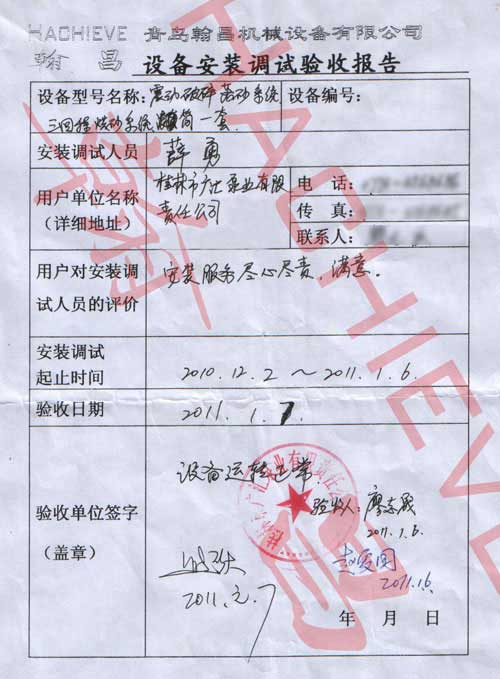 HACHIEVE 青岛翰昌机械设备有限公司
翰昌 设备安装调试验收报告
设备型号名称: 震动破碎落砂系统 设备编号:
三回程烘砂系统 一套
安装调试人员 薛勇
用户单位名称 桂林市广仕泵业有限 电 话:
(详细地址) 责任公司 传 真:
联系人:
用户对安装调 安装服务尽心尽责,满意。
试人员的评价
安装调试
起止时间 2010.12.2 ~ 2011.1.6
验收日期 2011.1.7
设备运转正常.
验收单位签字 验收人:
2011.1.6.
(盖章)
2011.1.6
2011.2.7
年 月 日
HACHIEVE